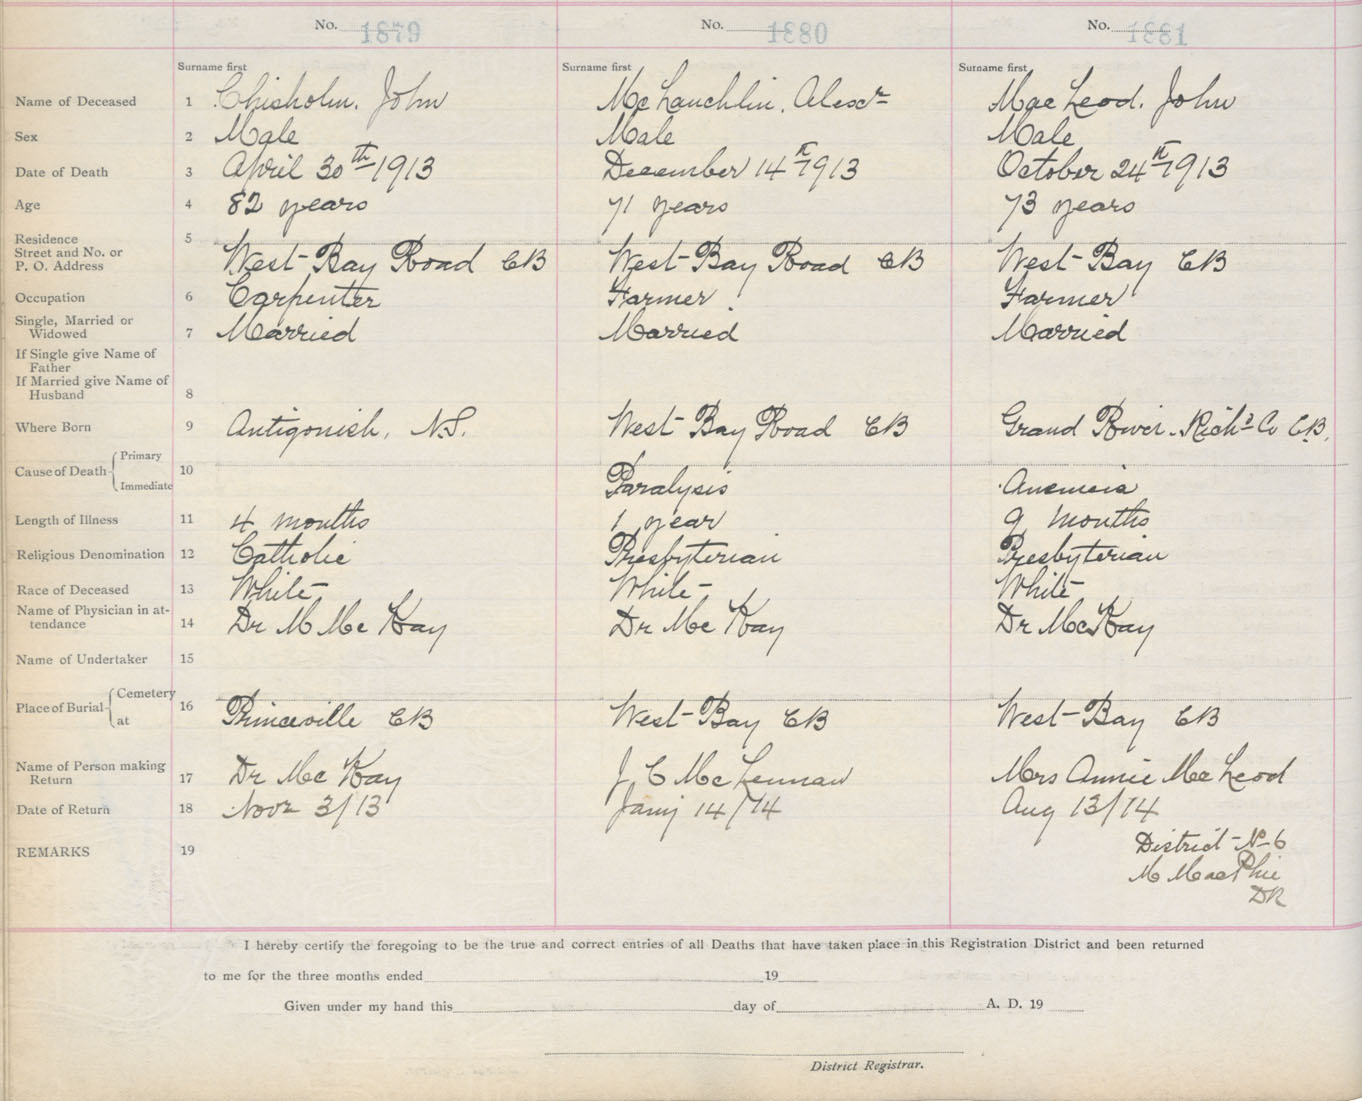 No. 1879 No. 1880 No. 1881
Surname first Surname first Surname first
Name of Deceased 1 Chisholm, John McLauchlin, Alexr MacLeod, John
Sex 2 Male Male Male
Date of Death 3 April 30th 1913 December 14th 1913 October 24th 1913
Age 4 82 years 71 years 73 years
Residence 5
Street and No. or
P. O. Address West Bay Road CB West Bay Road CB West Bay CB
Occupation 6 Carpenter Farmer Farmer
Single, Married or
Widowed 7 Married Married Married
If Single give Name of
Father
If Married give Name of
Husband 8
Where Born 9 Antigonish, N.S. West Bay Road CB Grand River, Richd Co C.B.
Cause of Death Primary 10
Immediate Paralysis Anemeia
Length of Illness 11 4 months 1 year 9 months
Religious Denomination 12 Catholic Presbyterian Presbyterian
Race of Deceased 13 White White White
Name of Physician in at-
tendance 14 Dr M McKay Dr McKay Dr McKay
Name of Undertaker 15
Place of Burial Cemetery 16
at Princeville CB West Bay CB West Bay CB
Name of Person making
Return 17 Dr McKay J C McLennan Mrs Annie McLeod
Date of Return 18 Novr 3/13 Jany 14/14 Aug 13/14
REMARKS 19 District No 6
M MacPhie
DR
I hereby certify the foregoing to be the true and correct entries of all Deaths that have taken place in this Registration District and been returned
to me for the three months ended 19
Given under my hand this day of A. D. 19
District Registrar.